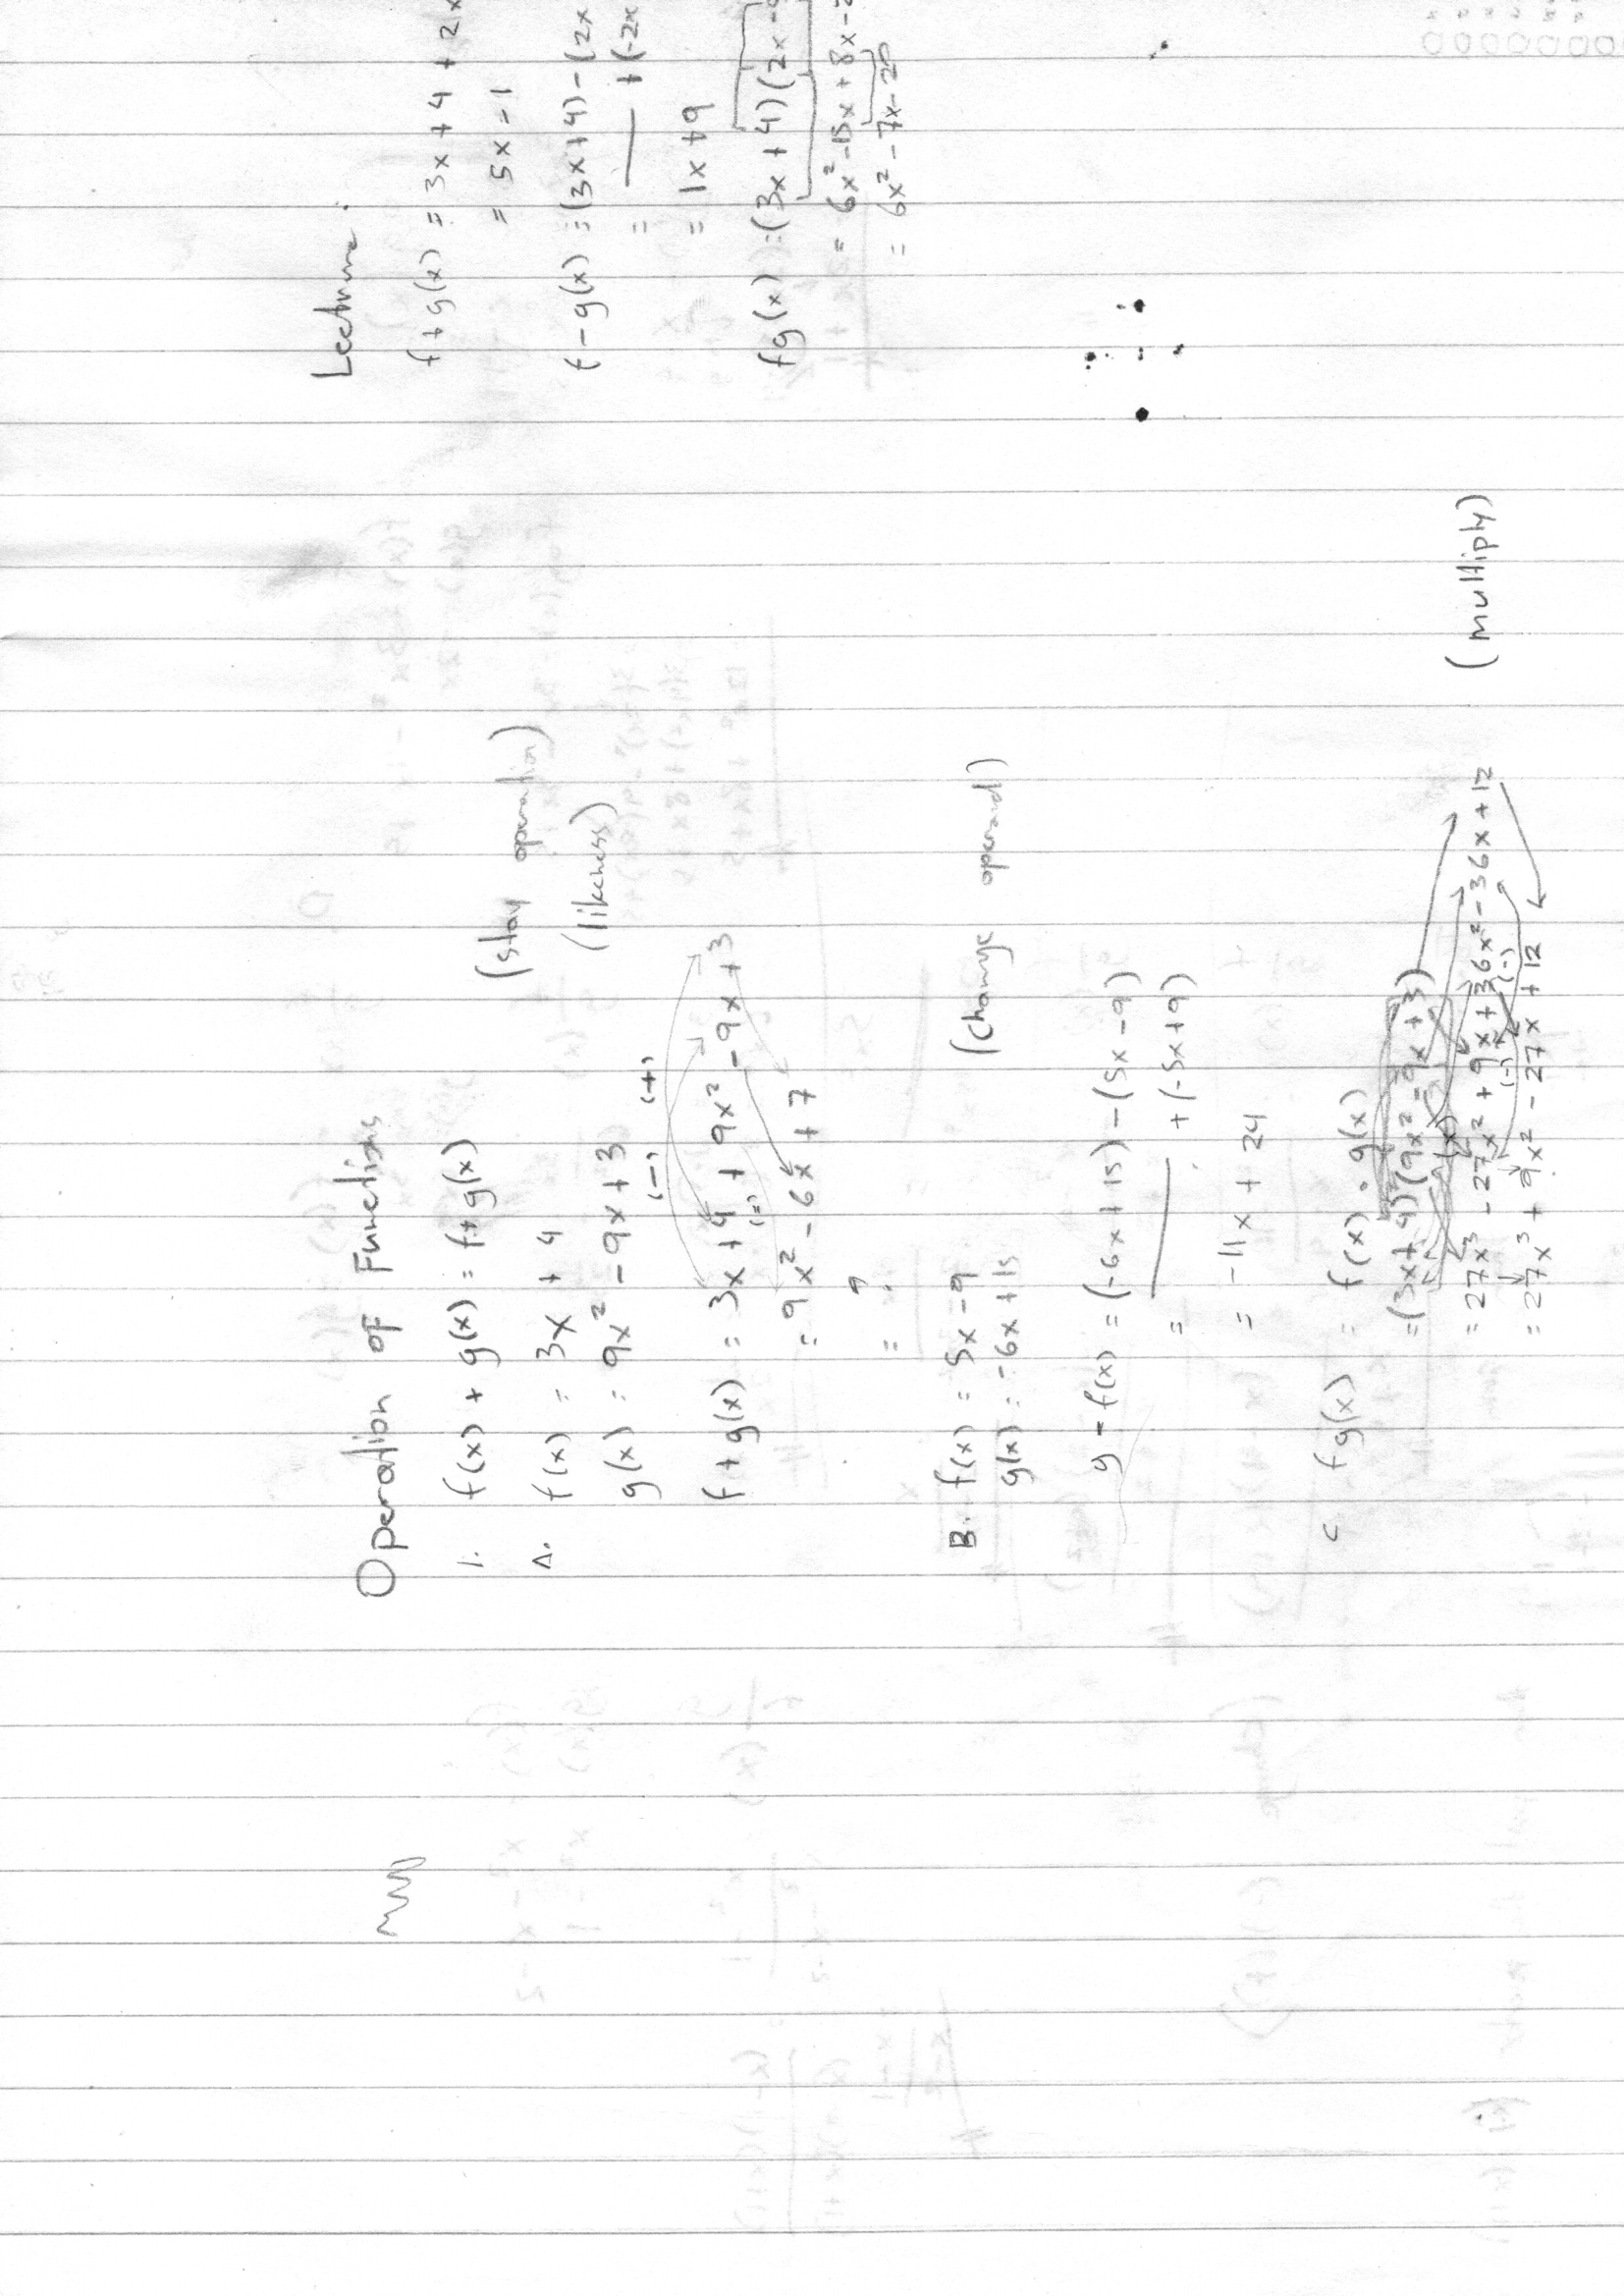 Operation of Functions
1. f(x) + g(x) = f+g(x)
(stay operation)
A. f(x) = 3x + 4
(likeness)
g(x) = 9x² - 9x + 3
(-) (+)
f+g(x) = 3x + 4 + 9x² - 9x + 3
(=)
= 9x² - 6x + 7
=
B. f(x) = 5x - 9
(change operand)
g(x) = -6x + 15
g - f(x) = (-6x + 15) - (5x - 9)
= + (-5x + 9)
= -11x + 24
C fg(x) = f(x) · g(x)
= (3x + 4) (9x² - 9x + 3)
(x)
(multiply)
= 27x³ - 27x² + 9x + 36x² - 36x + 12
(-) (-)
= 27x³ + 9x² - 27x + 12
Lecture:
f+g(x) = 3x + 4 + 2x
= 5x - 1
f-g(x) = (3x+4) - (2x
= + (-2x
= 1x + 9
fg(x) = (3x + 4) (2x -
= 6x² - 15x + 8x - 2
= 6x² - 7x - 20